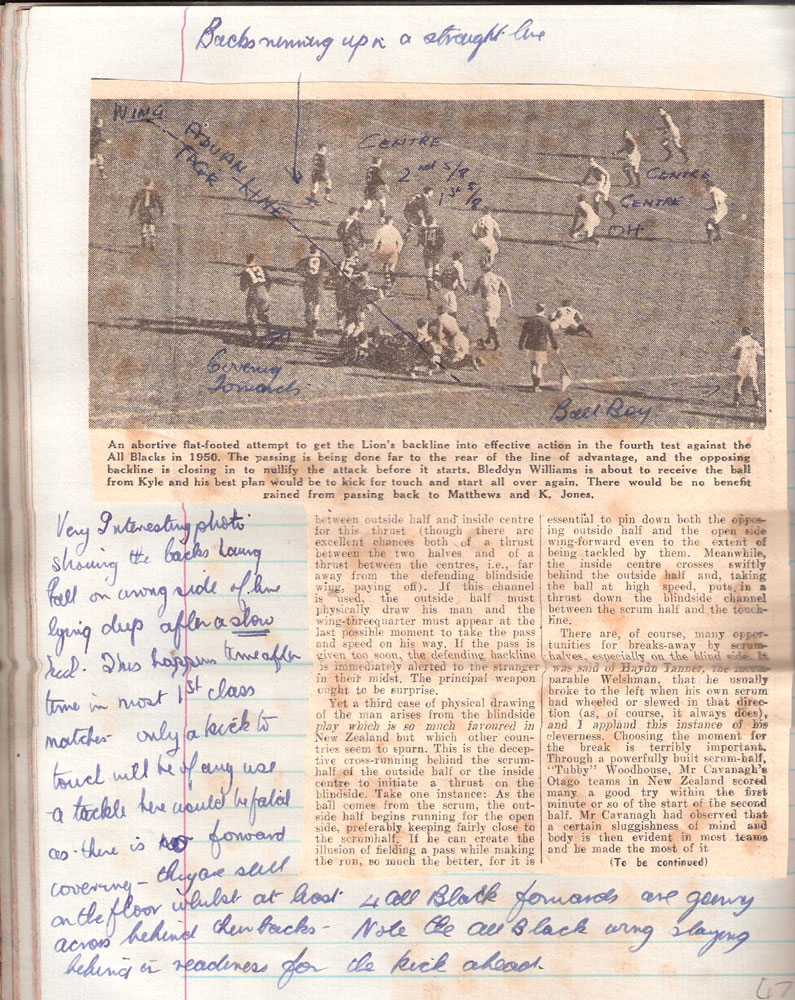 Backs running up in a straight line
WING
ADVAN
TAGE LINE
CENTRE
2nd 5/8
1st 5/8
CENTRE
CENTRE
OH.
13
9
15
14
Covering
Forwards
Ball Boy
An abortive flat-footed attempt to get the Lion's backline into effective action in the fourth test against the
All Blacks in 1950. The passing is being done far to the rear of the line of advantage, and the opposing
backline is closing in to nullify the attack before it starts. Bleddyn Williams is about to receive the ball
from Kyle and his best plan would be to kick for touch and start all over again. There would be no benefit
gained from passing back to Matthews and K. Jones.
Very Interesting photo
showing the backs having
ball on wrong side of line
lying deep after a slow
heel. This happens time after
time in most 1st class
matches - only a kick to
touch will be of any use
- a tackle here would be fatal
as - there is no forward
covering - they are still
on the floor whilst at least 4 all Black forwards are going
across behind their backs - Note the all Black wing staying
behind in readiness for the kick ahead.
between outside half and inside centre
for this thrust (though there are
excellent chances both of a thrust
between the two halves and of a
thrust between the centres, i.e., far
away from the defending blindside
wing, paying off). If this channel
is used, the outside half must
physically draw his man and the
wing-threequarter must appear at the
last possible moment to take the pass
and speed on his way. If the pass is
given too soon, the defending backline
is immediately alerted to the stranger
in their midst. The principal weapon
ought to be surprise.
Yet a third case of physical drawing
of the man arises from the blindside
play which is so much favoured in
New Zealand but which other coun-
tries seem to spurn. This is the decep-
tive cross-running behind the scrum-
half of the outside half or the inside
centre to initiate a thrust on the
blindside. Take one instance: As the
ball comes from the scrum, the out-
side half begins running for the open
side, preferably keeping fairly close to
the scrumhalf. If he can create the
illusion of fielding a pass while making
the run, so much the better, for it is
essential to pin down both the oppos-
ing outside half and the open side
wing-forward even to the extent of
being tackled by them. Meanwhile,
the inside centre crosses swiftly
behind the outside half and, taking
the ball at high speed, puts in a
thrust down the blindside channel
between the scrum half and the touch-
line.
There are, of course, many oppor-
tunities for breaks-away by scrum-
halves, especially on the blind side. It
was said of Haydn Tanner, the incom-
parable Welshman, that he usually
broke to the left when his own scrum
had wheeled or slewed in that direc-
tion (as, of course, it always does),
and I applaud this instance of his
cleverness. Choosing the moment for
the break is terribly important.
Through a powerfully built scrum-half,
"Tubby" Woodhouse, Mr Cavanagh's
Otago teams in New Zealand scored
many a good try within the first
minute or so of the start of the second
half. Mr Cavanagh had observed that
a certain sluggishness of mind and
body is then evident in most teams
and he made the most of it
(To be continued)
47